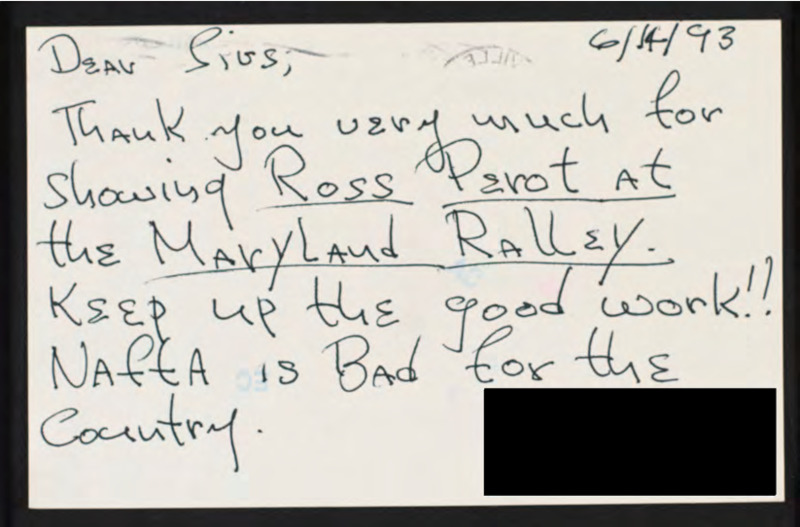 6/14/93
Dear Sirs;
Thank you very much for
showing Ross Perot at
the Maryland Ralley.
Keep up the good work!!
NAftA is Bad for the
Country.